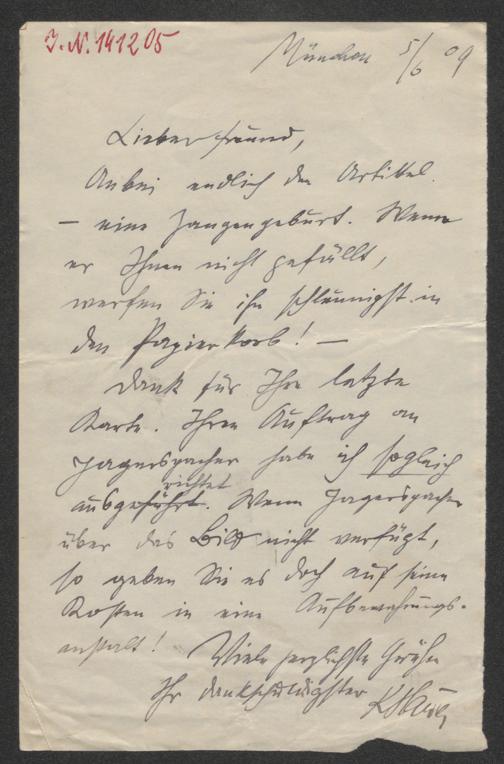 J. N. 141205
München 5/6 09
Lieber Freund,
Anbei endlich der Artikel.
– eine Zangengeburt. Wenn
er Ihnen nicht gefällt,
werfen Sie ihn schleunigst in
den Papierkorb! –
Dank für Ihre letzte
Karte. Ihren Auftrag an
Jagerspacher habe ich sogleich
richtet
ausgeführt. Wenn Jagerspacher
über das Bild nicht verfügt,
so geben Sie es doch auf seine
Kosten in eine Aufbewahrungs-
anstalt! Viele herzlichste Grüße
Ihr dankschuldigster